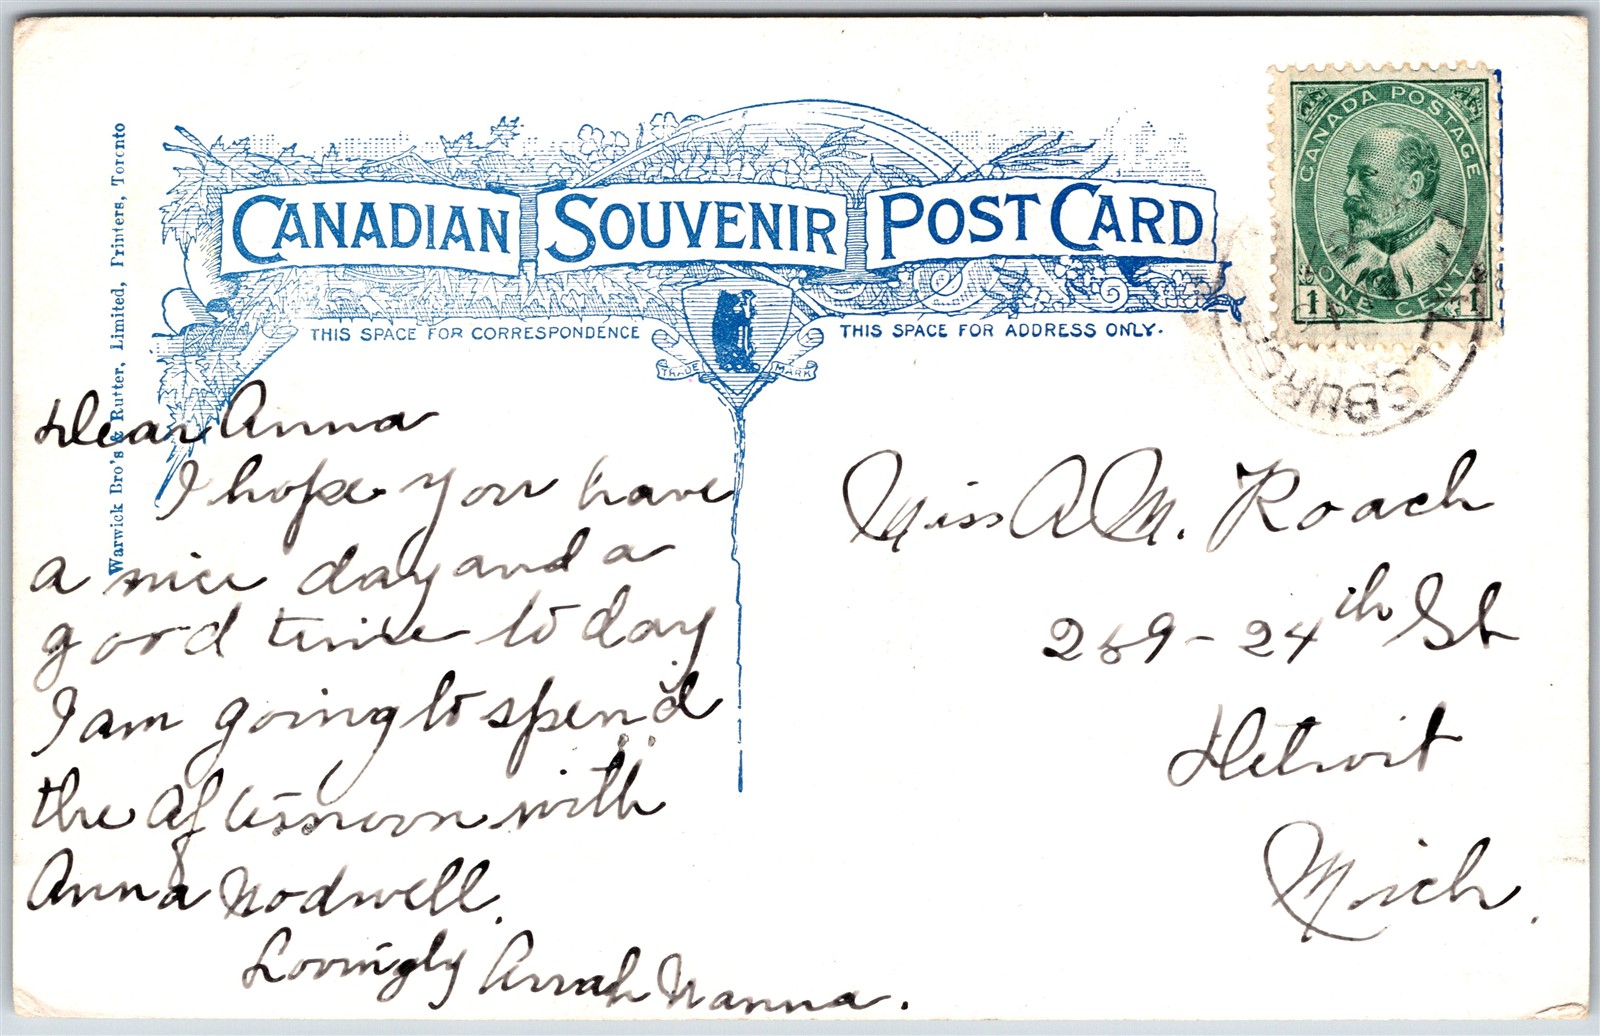 Warwick Bro's & Rutter, Limited, Printers, Toronto
CANADIAN SOUVENIR POST CARD
THIS SPACE FOR CORRESPONDENCE
THIS SPACE FOR ADDRESS ONLY.
TRADE MARK
CANADA POSTAGE
ONE CENT
1 1
Dear Anna
I hope you have
a nice day and a
good time to day
I am going to spend
the afternoon with
Anna Nodwell.
Lovingly Annah Nanna.
Miss A M. Roach
269 - 24th St
Detroit
Mich.